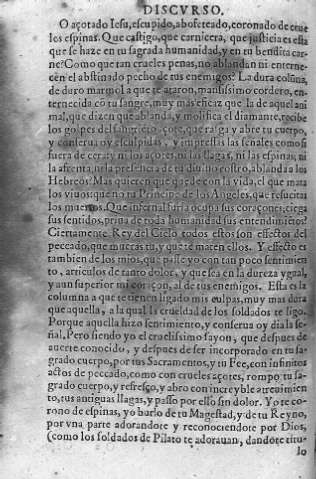 DISCVRSO.
O açotado Iesu, escupido, abofeteado, coronado de crue
les espinas. Que castigo, que carniceria, que justicia es esta
que se haze en tu sagrada humanidad, y en tu bendita car-
ne? Como que tan crueles penas, no ablandan ni enterne-
cen el abstinado pecho de tus enemigos? La dura coluna,
de duro marmol a que te ataron, mansissimo cordero, en-
ternecida cō tu sangre, muy mas eficaz que la de aquel ani
mal, que dizen que ablanda, y molifica el diamante, recibe
los golpes del sangriento açote, que rasga y abre tu cuerpo,
y conserua oy esculpidas, y impressas las señales como si
fuera de cera: y ni los açotes, ni las llagas, ni las espinas, ni
la afrenta, ni la presencia de tu diuino rostro, ablanda a los
Hebreos? Mas quieren que quede con la vida, el que mata
los viuos: que no tu Principe de los Angeles, que resucitas
los muertos. Que infernal furia ocupa sus coraçones: ciega
sus sentidos, priua de toda humanidad sus entendimiētos?
Ciertamente Rey del Cielo todos estos son effectos del
peccado, que mueras tu, y que te maten ellos. Y effecto es
tambien de los mios, que passe yo con tan poco sentimien
to, articulos de tanto dolor, y que sea en la dureza ygual,
y aun superior mi coraçon, al de tus enemigos. Esta es la
columna a que te tienen ligado mis culpas, muy mas dura
que aquella, a la qual la crueldad de los soldados te ligo.
Porque aquella hizo sentimiento, y conserua oy dia la se-
ñal. Pero siendo yo el cruelissimo sayon, que despues de
auerte conocido, y despues de ser incorporado en tu sa-
grado cuerpo, por tus Sacramentos, y tu Fee, con infinitos
actos de peccado, como con crueles açotes, rompo tu sa-
grado cuerpo, y refresco, y abro con increyble atreuimien
to, tus antiguas llagas, y passo por ello sin dolor. Yo te co-
rono de espinas, yo burlo de tu Magestad, y de tu Reyno,
por vna parte adorandote y reconociendote por Dios,
(como los soldados de Pilato te adorauan, dandote titu-
lo